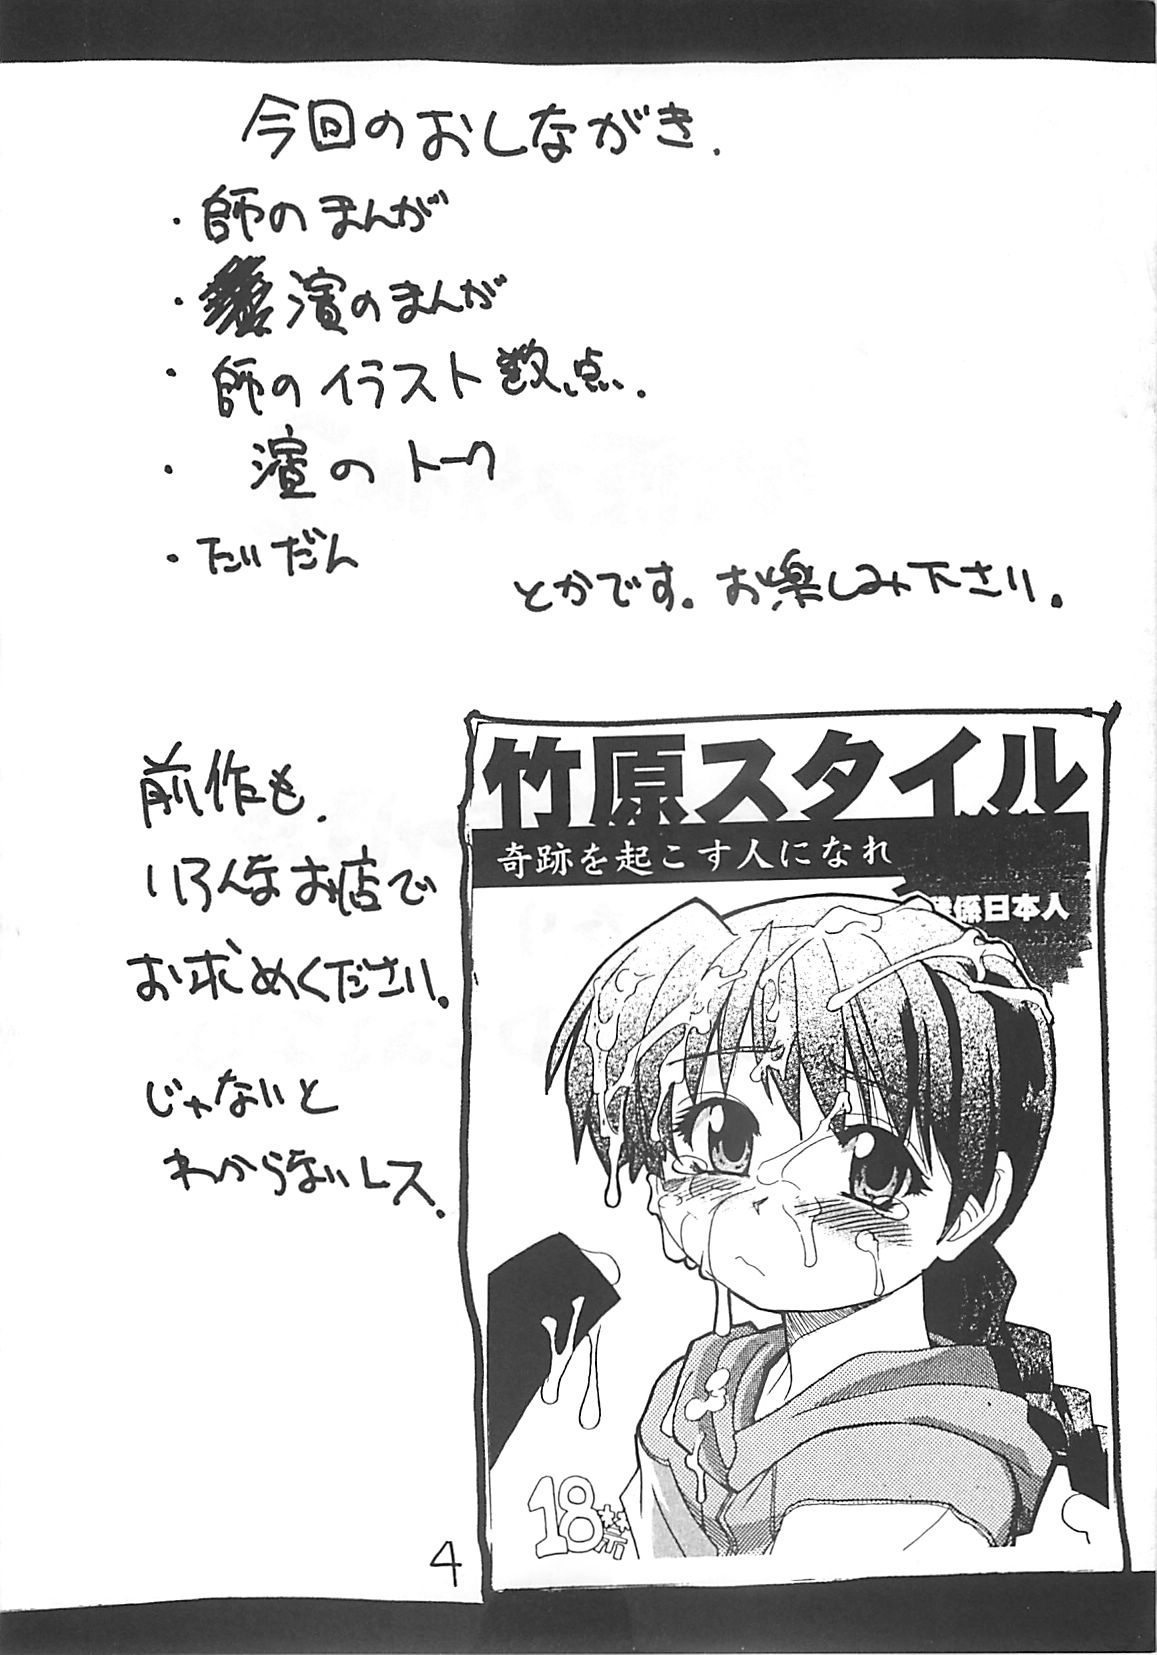 今回のおしながき.
・師のまんが
・濱のまんが
・師のイラスト数点.
・濱のトーク
・たいだん
とかです。お楽しみ下さい.
前作も.
いろんなお店で
お求めください.
じゃないと
わからないレス.
竹原スタイル
奇跡を起こす人になれ
係日本人
18禁
4